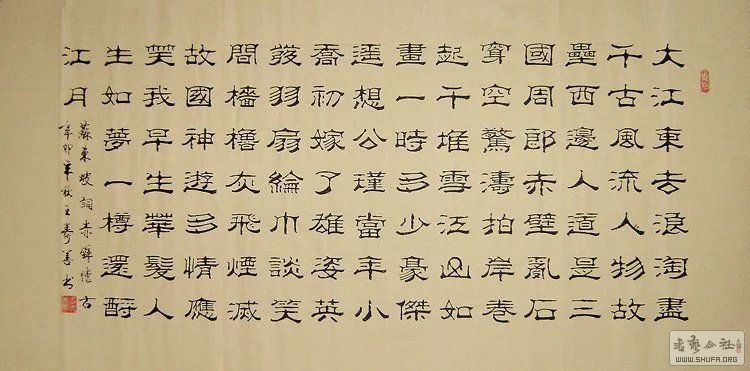 大江東去浪淘盡
千古風流人物故
壘西邊人道是三
國周郎赤壁亂石
穿空驚濤拍岸卷
起千堆雪江山如
畫一時多少豪傑
遥想公瑾當年小
喬初嫁了雄姿英
發羽扇綸巾談笑
間檣櫓灰飛煙滅
故國神遊多情應
笑我早生華髮人
生如夢一樽還酹
江月
蘇東坡詞赤壁懷古
辛卯年秋王壽善书
WWW.SHUFA.ORG